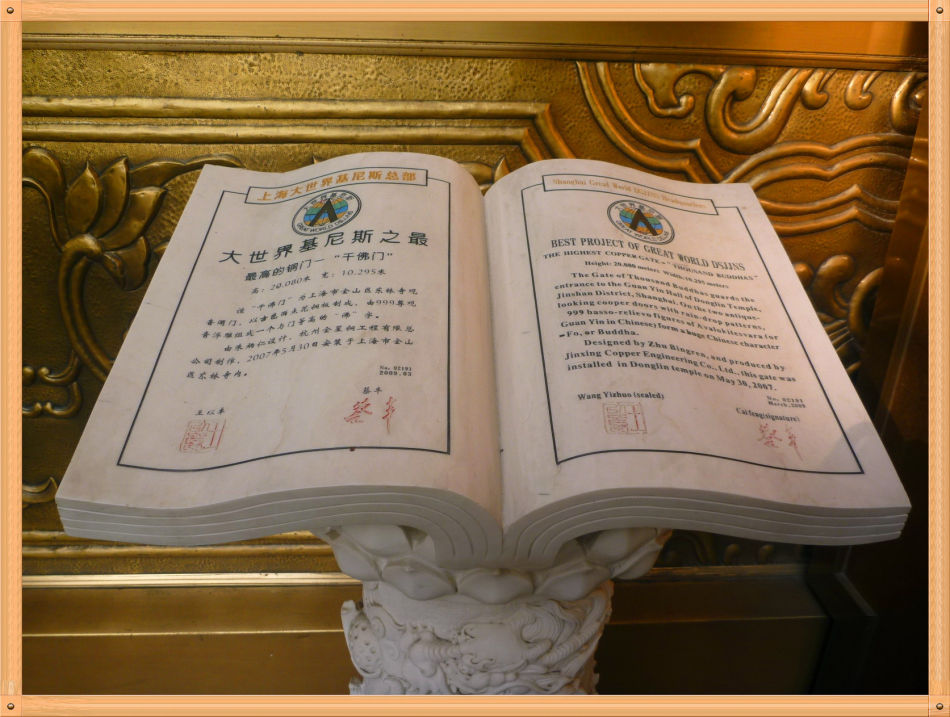 上海大世界基尼斯总部
大世界基尼斯之最
最高的铜门—“千佛门”
高：20.080米 宽：10.295米
“千佛门”为上海市金山区东林寺观
音阁门，以古色雨点花铜板制成，由999尊观
音浮雕组成一个与门等高的“佛”字。
由朱炳仁设计，杭州金星铜工程有限总
公司制作，2007年5月30日安装于上海市金山
区东林寺内。
No. 02191
2009.03
蔡丰
Shanghai Great World DSJJNS Headquarters
GREAT WORLD DSJJNS
BEST PROJECT OF GREAT WORLD DSJJNS
THE HIGHEST COPPER GATE-“THOUSAND BUDDHAS”
Height: 20.080 meters Width: 10.295 meters
The Gate of Thousand Buddhas guards the
entrance to the Guan Yin Hall of Donglin Temple,
Jinshan District, Shanghai. On the two antique-
looking cooper doors with rain-drop patterns,
999 basso-relievo figures of Avalokitesvara (or
Guan Yin in Chinese) form a huge Chinese character
-Fo, or Buddha.
Designed by Zhu Bingren, and produced by
Jinxing Copper Engineering Co., Ltd., this gate was
installed in Donglin temple on May 30, 2007.
No. 02191
March, 2009
Wang Yizhuo (sealed)
Cai feng(signature)